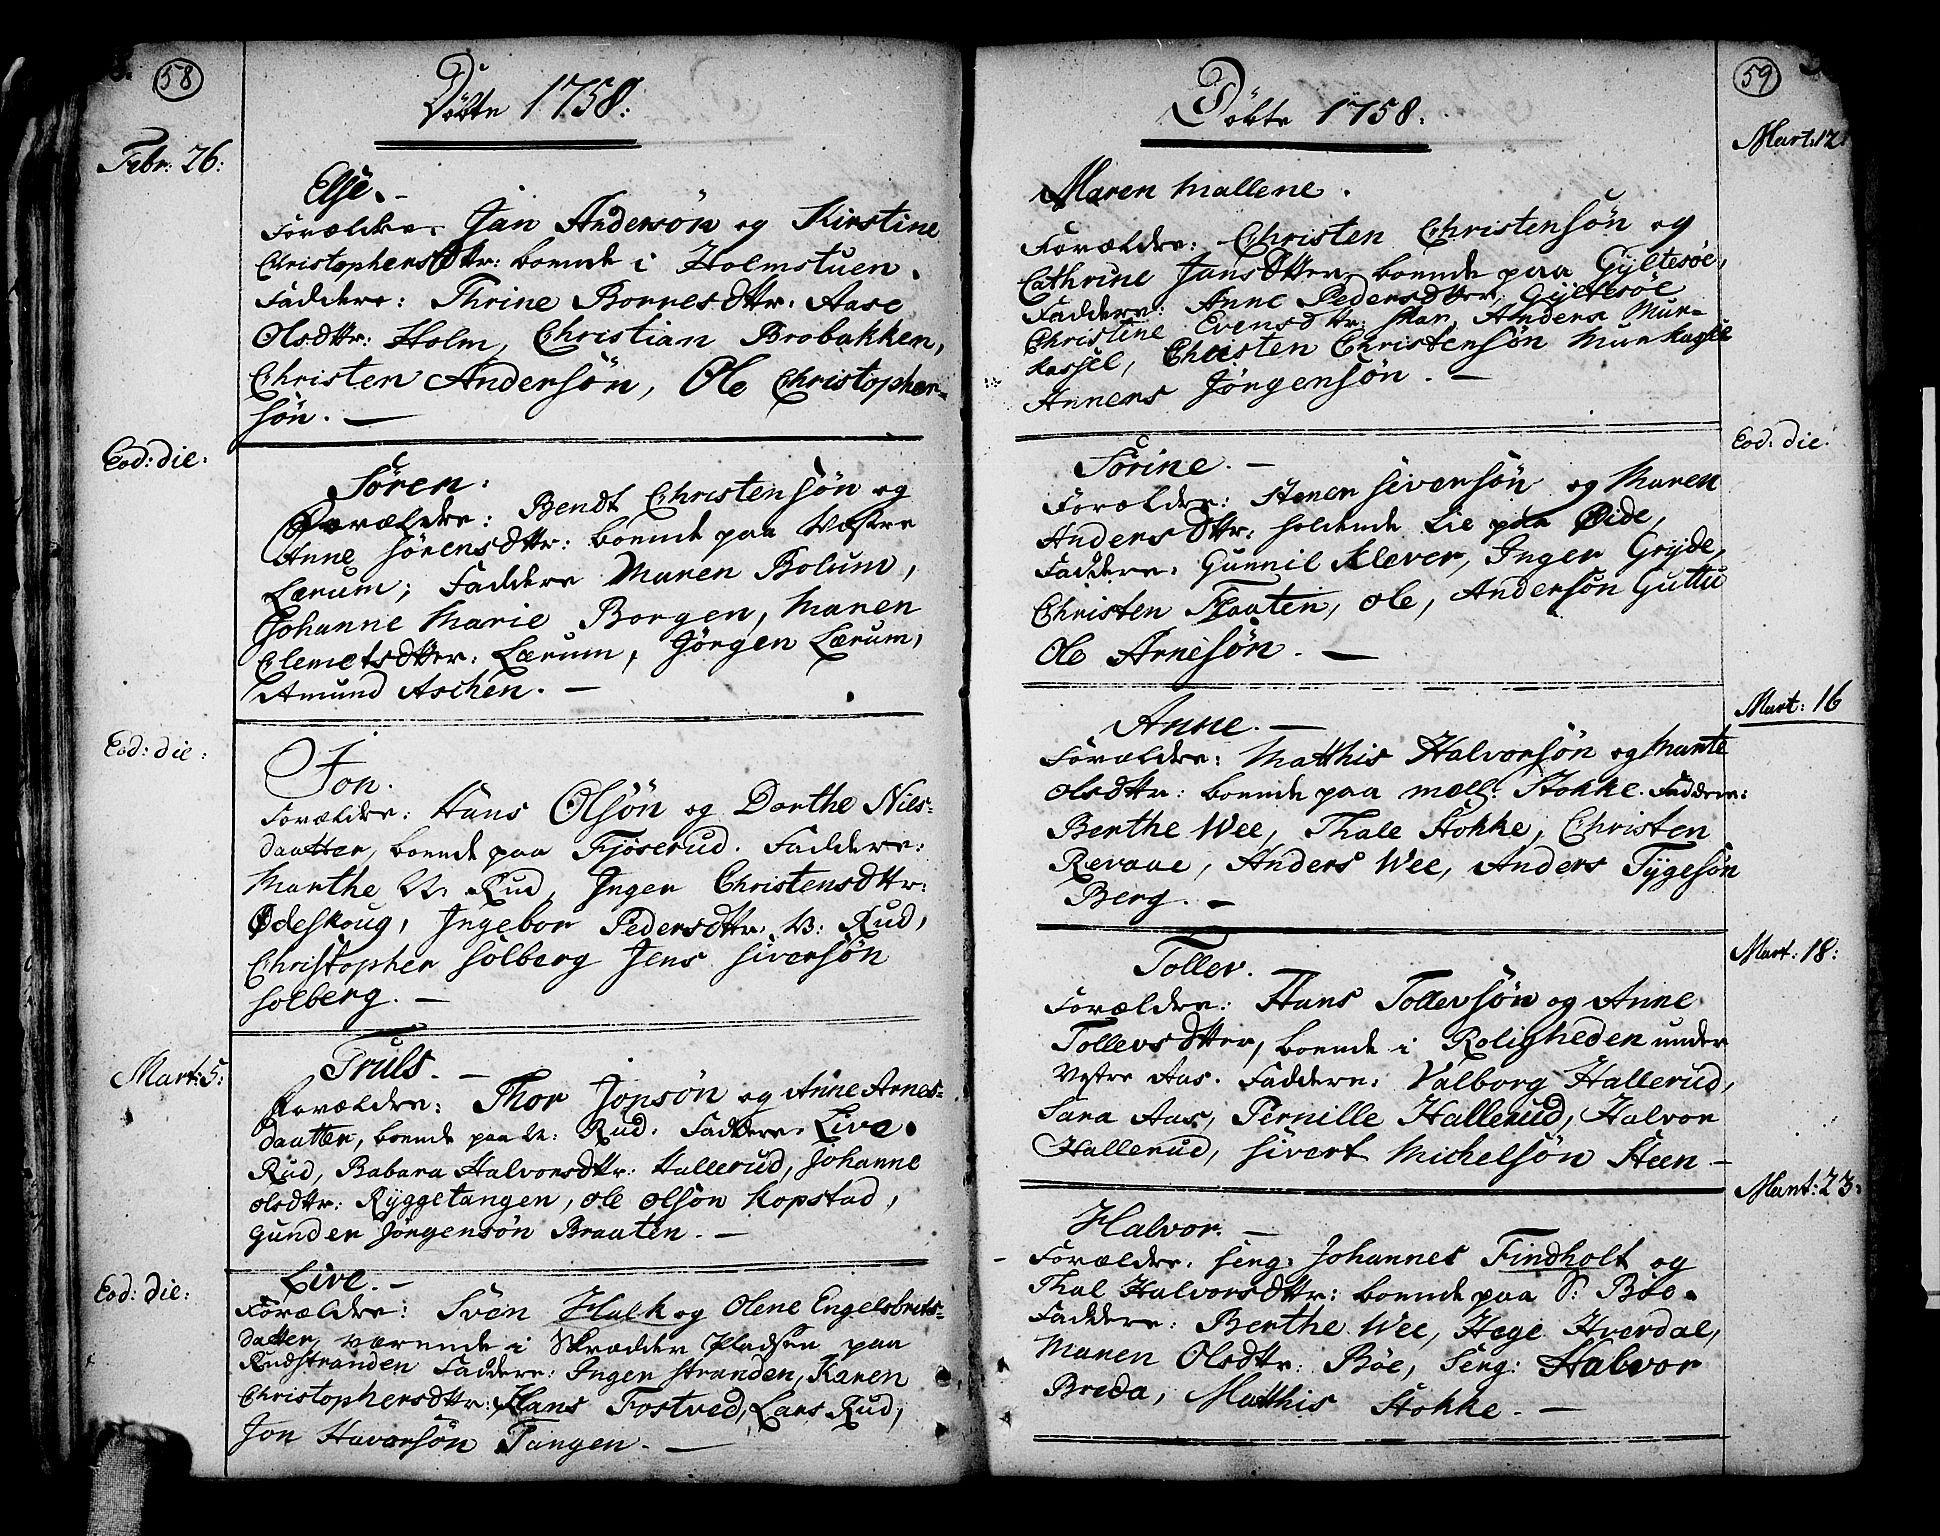 58
Döbte 1758:
Febr: 26:
Else.
Forældre Jan Andersön og Kirstine
Christophersdttr: boende i Holmstuen.
Faddere: Thrine Borresdttr: Aase
Olsdttr: Holm, Christian Brobakken,
Christen Andersön, Ole Christopher-
sön.
Eod: die:
Sören.
Forældre: Bendt Christensön og
Anne Sörensdttr: boende paa Västre
Lærum; Faddere Maren Bolum,
Johanne Marie Borgen, Maren
Clemetsdtter: Lærum, Jörgen Lærum,
Amund Aschen.
Eod: die:
Jon.
Forældre: Hans Olsön og Dorthe Niels-
daatter, boende paa Fjöserud. Faddere:
Marthe N: Rud, Inger Christensdttr:
Ödeskoug, Ingebor Pedersdttr: N: Rud,
Christopher Solberg Jens Siversön
Solberg.
Mart: 5:
Truls.
Forældre: Thor Jonsön og Anne Arnes-
daatter, boende paa N: Rud. Faddere: Live
Rud, Babara Halvorsdttr: Hallerud, Johanne
Olsdttr: Ryggetangen, Ole Olsön Kopstad,
Gunder Jörgensön Braaten.
Eod: die:
Live.
Forældre: Svën Halk og Olene Engelsbrets-
datter, værende i Skrædder Pladsen paa
Rudstranden Faddere: Inger Stranden, Karen
Christophersdttr: Hans Fostved, Lars Rud,
Jon Havorsön Tangen.
59
Döbte 1758.
Mart: 12:
Maren Mallene.
Forældre: Christen Christensön og
Cathrine Jansdtter boende paa Gyltesöe,
Faddere: Anne Pedersdtter Gyltesöe
Christine Evensdttr: Skar, Anders Mur-
kassel, Christen Christensön Murkassel
Anners Jörgensön.
Eod: die:
Sörine.
Forældre: Stener Siversön og Maren
Andersdttr: holdende Lie paa Øide,
Faddere: Gunnil Klever, Inger Gryde,
Christen Flaaten, Ole, Andersön Guttu
Ole Arnesön.
Mart: 16
Anne.
Forældre: Matthis Halvorsön og Marte
Olsdttr: boende paa Mell: Stokke. Faddere:
Berthe Wee, Thale Stokke, Christen
Revaae, Anders Wee, Anders Tygesön
Berg.
Mart: 18:
Tollev.
Forældre: Hans Tollevsön og Anne
Tollevsdtter, boende i Roligheden under
Vestre Aas. Faddere: Valborg Hallerud,
Sara Aas, Pernille Hallerud, Halvor
Hallerud, Sivert Michelsön Steen
Mart: 23:
Halvor.
Forældre: Serg: Johannes Findholt og
Thal Halvorsdttr: boende paa S: Böe.
Faddere: Berthe Wee, Hege Hverdal,
Maren Olsdttr: Böe, Serg: Halvor
Breda, Matthis Stokke.